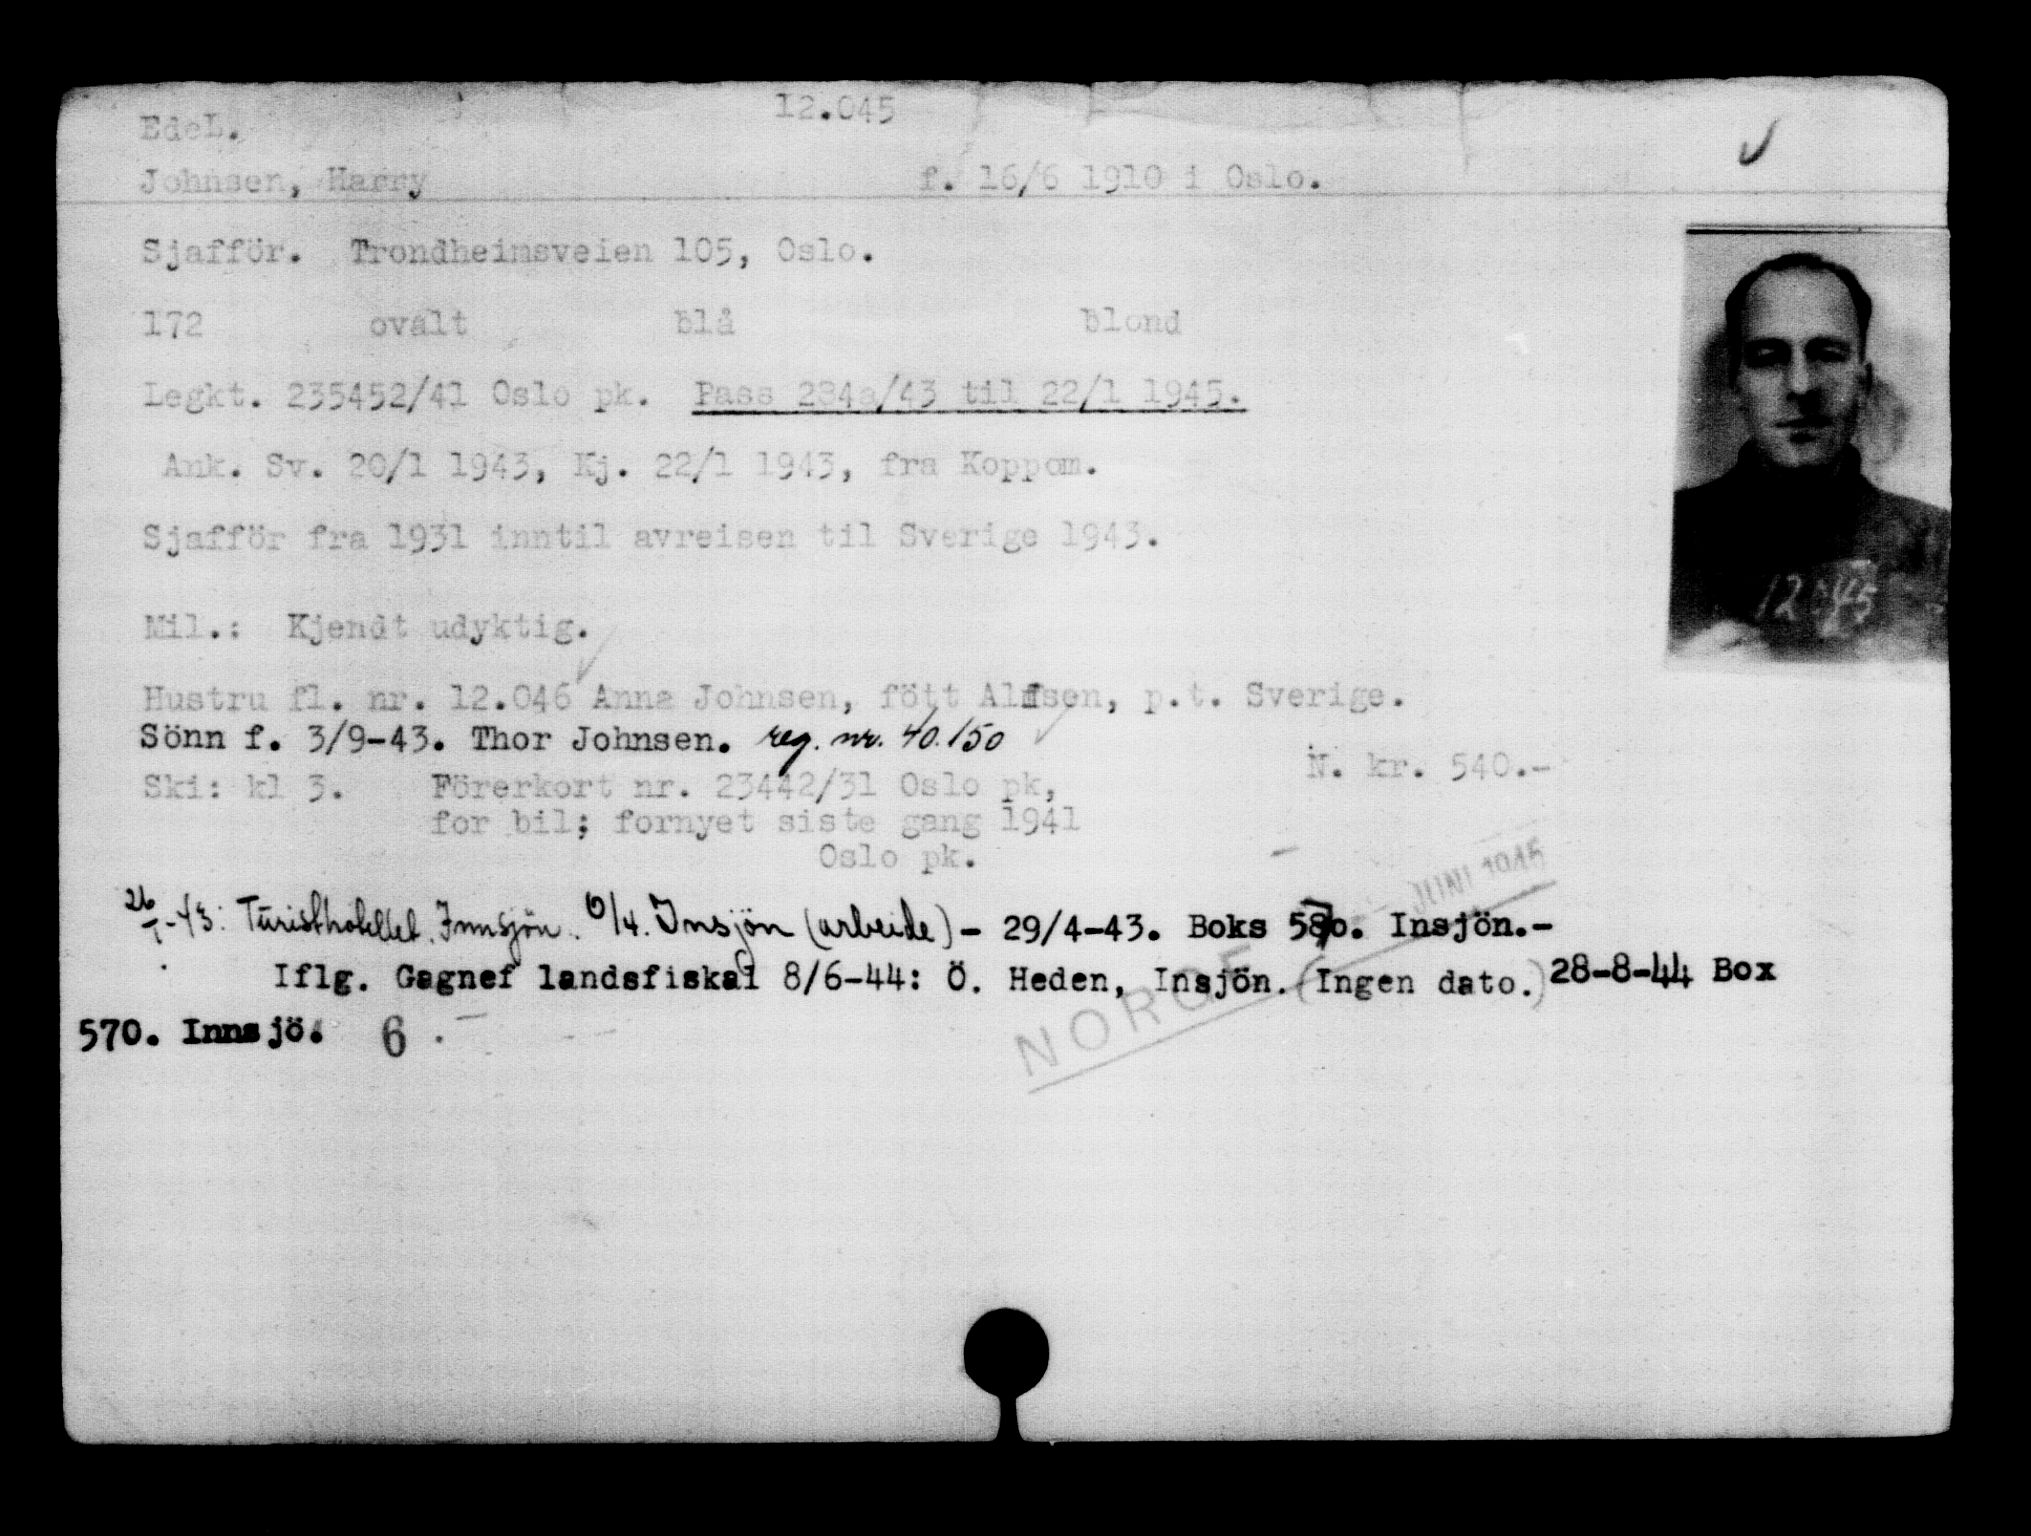 12.045
EdeL.
Johnsen, Harry f. 16/6 1910 i Oslo.
Sjafför. Trondheimsveien 105, Oslo.
172 ovalt blå blond
Legkt. 235452/41 Oslo pk. Pass 284a/43 til 22/1 1945.
Ank. Sv. 20/1 1943, Kj. 22/1 1943, fra Koppom.
Sjafför fra 1931 inntil avreisen til Sverige 1943.
12045
Mil.: Kjendt udyktig.
Hustru fl. nr. 12.046 Anna Johnsen, fött p.t. Sverige.
Sönn f. 3/9-43. Thor Johnsen. reg. nr. 40.150
N. kr. 540.-
Ski: kl 3. Förerkort nr. 23442/31 Oslo pk,
for bil; fornyet siste gang 1941
Oslo pk.
JUNI 1945
26/1-43: Turisthotellet, Innsjön. 6/4. Insjön (arbeide) - 29/4-43. Boks 570. Insjön.-
Iflg. Gagnef landsfiskal 8/6-44: Ö. Heden, Insjön. (Ingen dato.) 28-8-44 Box
570. Innsjö. 6.
NORGE